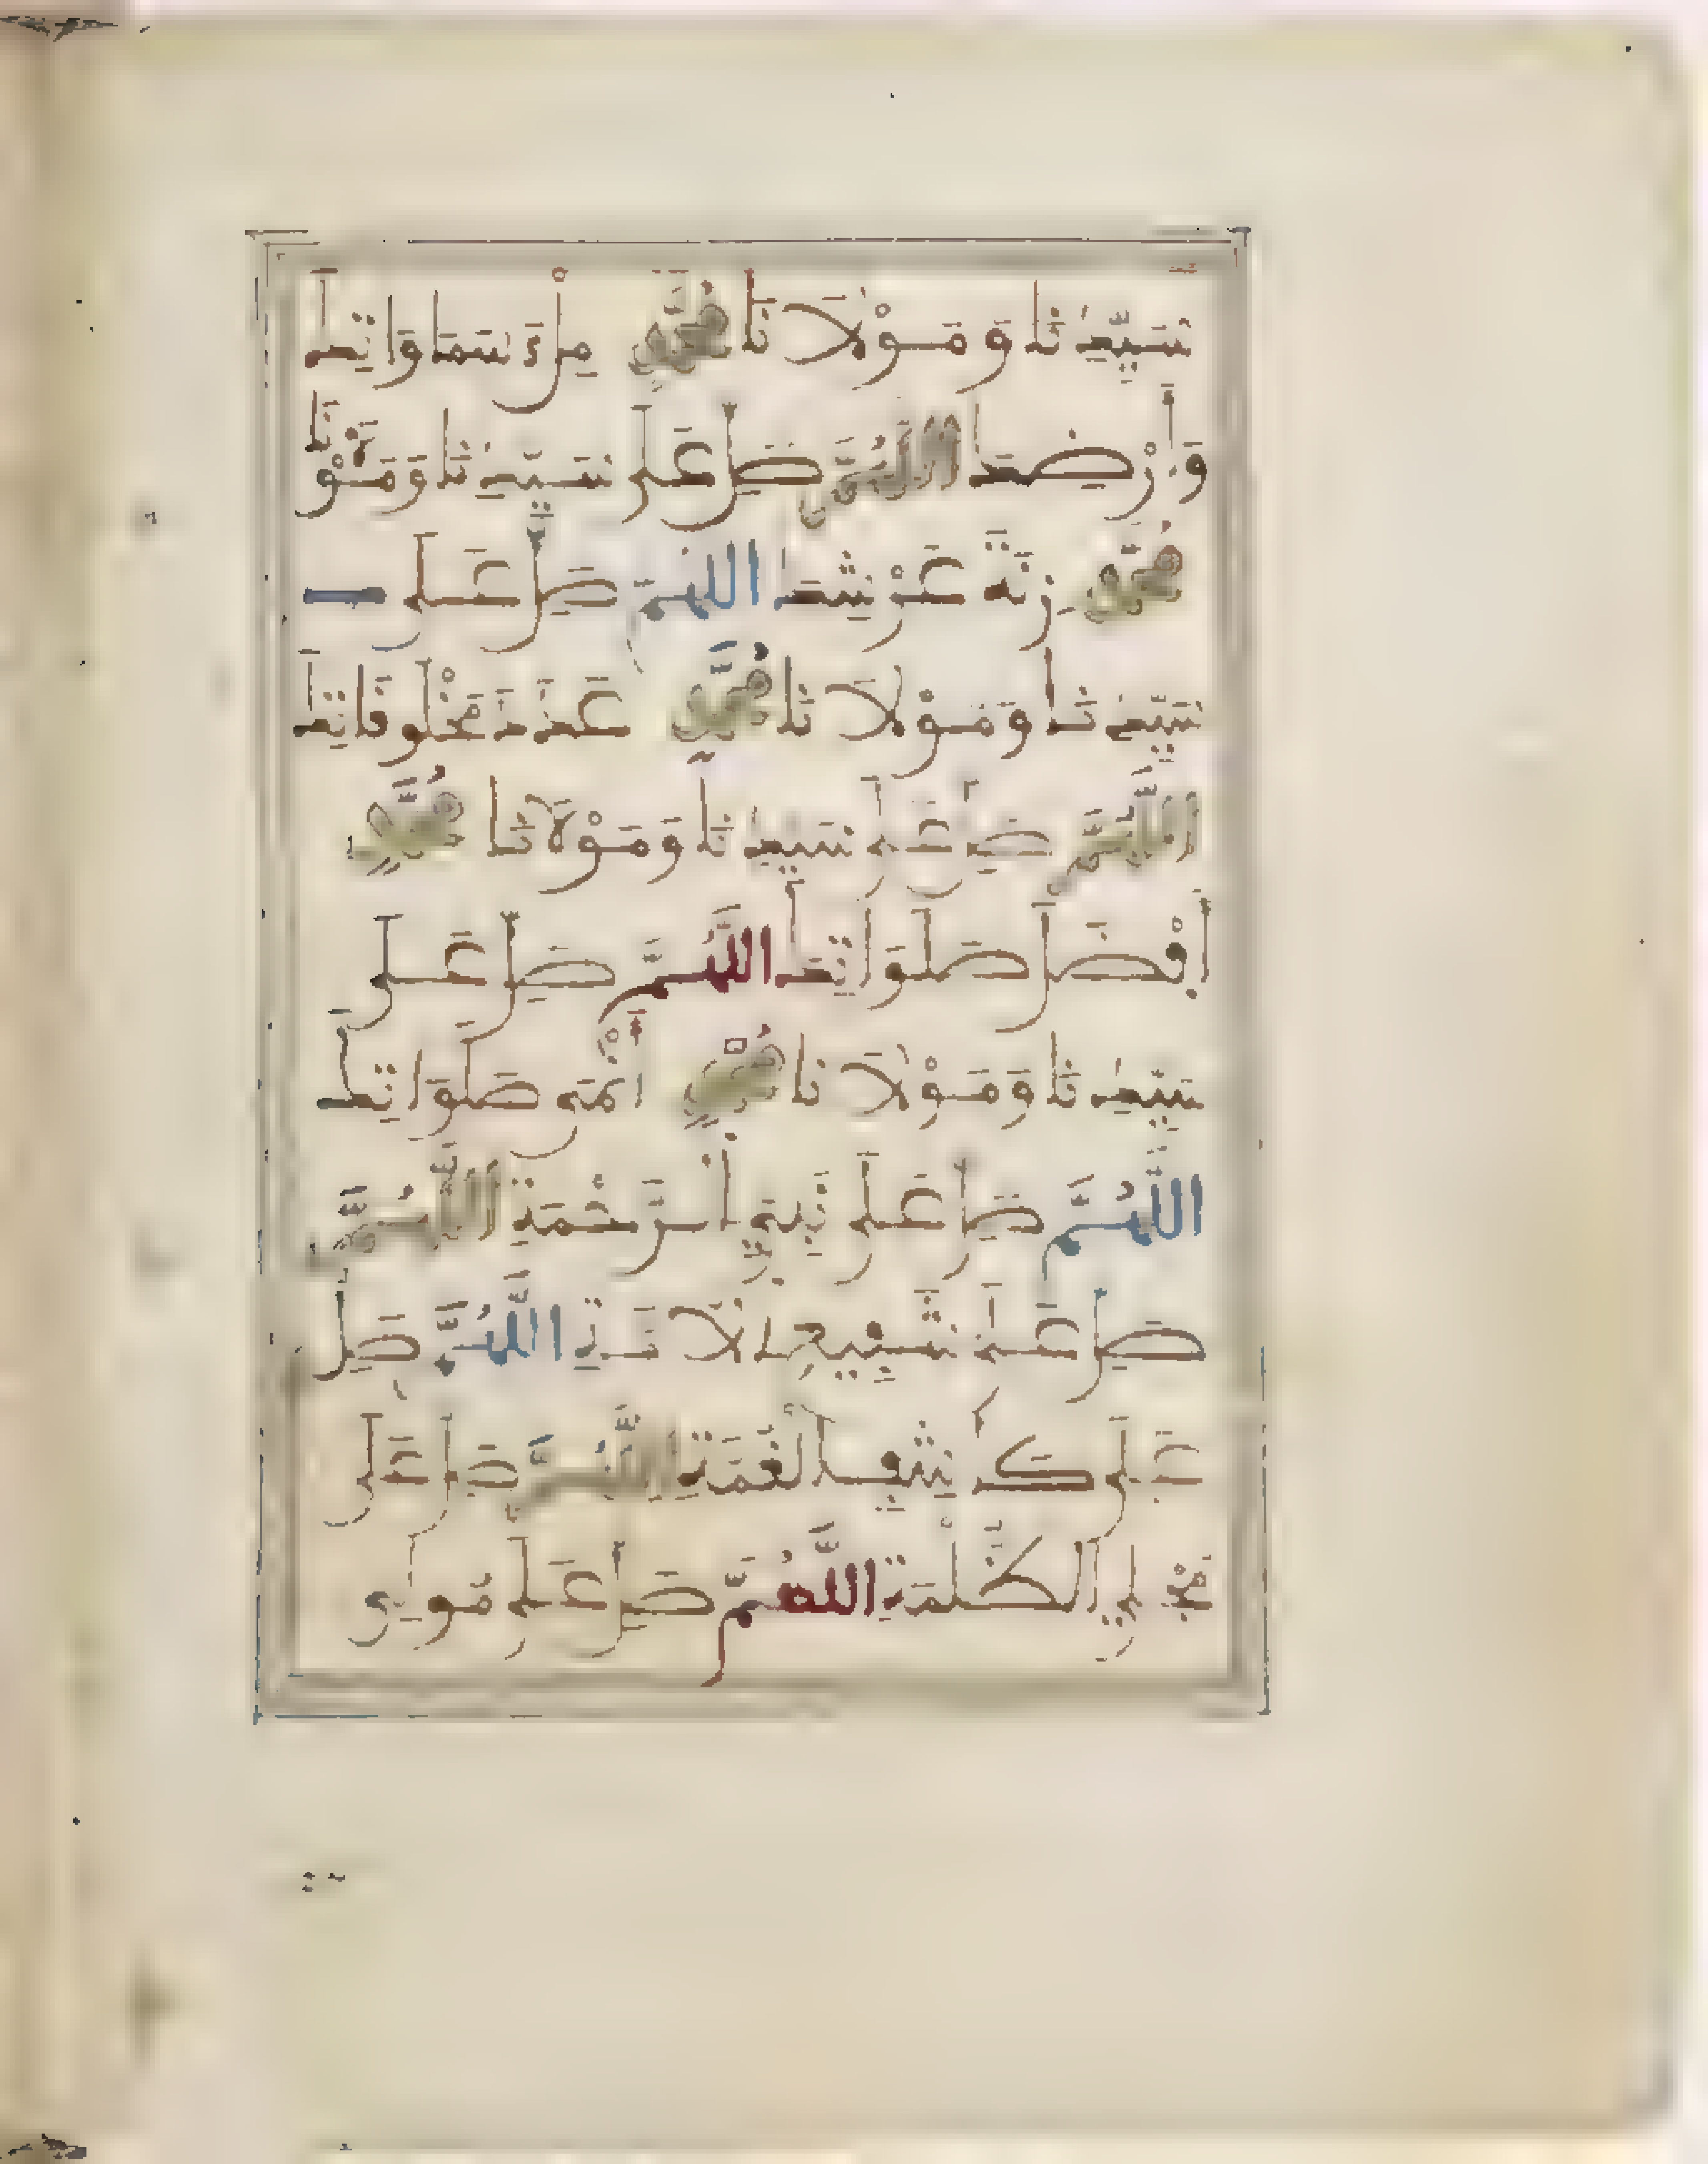 سَيِّدِنَا وَمَوْلَانَا مُحَمَّدٍ مِلْءَ سَمَاوَاتِكَ
وَأَرْضِكَ اللَّهُمَّ صَلِّ عَلَى سَيِّدِنَا وَمَوْلَانَا
مُحَمَّدٍ زِنَةَ عَرْشِكَ اللَّهُمَّ صَلِّ عَلَى
سَيِّدِنَا وَمَوْلَانَا مُحَمَّدٍ عَدَدَ مَخْلُوقَاتِكَ
اللَّهُمَّ صَلِّ عَلَى سَيِّدِنَا وَمَوْلَانَا مُحَمَّدٍ
أَفْضَلَ صَلَوَاتِكَ اللَّهُمَّ صَلِّ عَلَى
سَيِّدِنَا وَمَوْلَانَا مُحَمَّدٍ أَنْمَى صَلَوَاتِكَ
اللَّهُمَّ صَلِّ عَلَى نَبِيِّ الرَّحْمَةِ اللَّهُمَّ
صَلِّ عَلَى شَفِيعِ الْأُمَّةِ اللَّهُمَّ صَلِّ
عَلَى كَاشِفِ الْغُمَّةِ اللَّهُمَّ صَلِّ عَلَى
مُجْلِي الظُّلْمَةِ اللَّهُمَّ صَلِّ عَلَى مُولِي